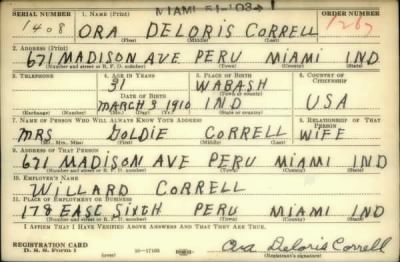 MIAMI 51-103-1
SERIAL NUMBER 1. NAME (Print) ORDER NUMBER
1408 ORA DELORIS CORRELL 1267
(First) (Middle) (Last)
2. ADDRESS (Print)
671 MADISON AVE PERU MIAMI IND
(Number and street or R. F. D. number) (Town) (County) (State)
3. TELEPHONE 4. AGE IN YEARS 5. PLACE OF BIRTH 6. COUNTRY OF CITIZENSHIP
31 WABASH
DATE OF BIRTH (Town or county)
MARCH 3 1910 IND USA
(Exchange) (Number) (Mo.) (Day) (Yr.) (State or country)
7. NAME OF PERSON WHO WILL ALWAYS KNOW YOUR ADDRESS 8. RELATIONSHIP OF THAT PERSON
MRS GOLDIE CORRELL WIFE
(Mr., Mrs., Miss) (First) (Middle) (Last)
9. ADDRESS OF THAT PERSON
671 MADISON AVE PERU MIAMI IND
(Number and street or R. F. D. number) (Town) (County) (State)
10. EMPLOYER'S NAME
WILLARD CORRELL
11. PLACE OF EMPLOYMENT OR BUSINESS
178 EAST SIXTH PERU MIAMI IND
(Number and street or R. F. D. number) (Town) (County) (State)
I AFFIRM THAT I HAVE VERIFIED ABOVE ANSWERS AND THAT THEY ARE TRUE.
REGISTRATION CARD
D. S. S. Form 1 (over) 16-17105 Ora Deloris Correll
(Registrant's signature)